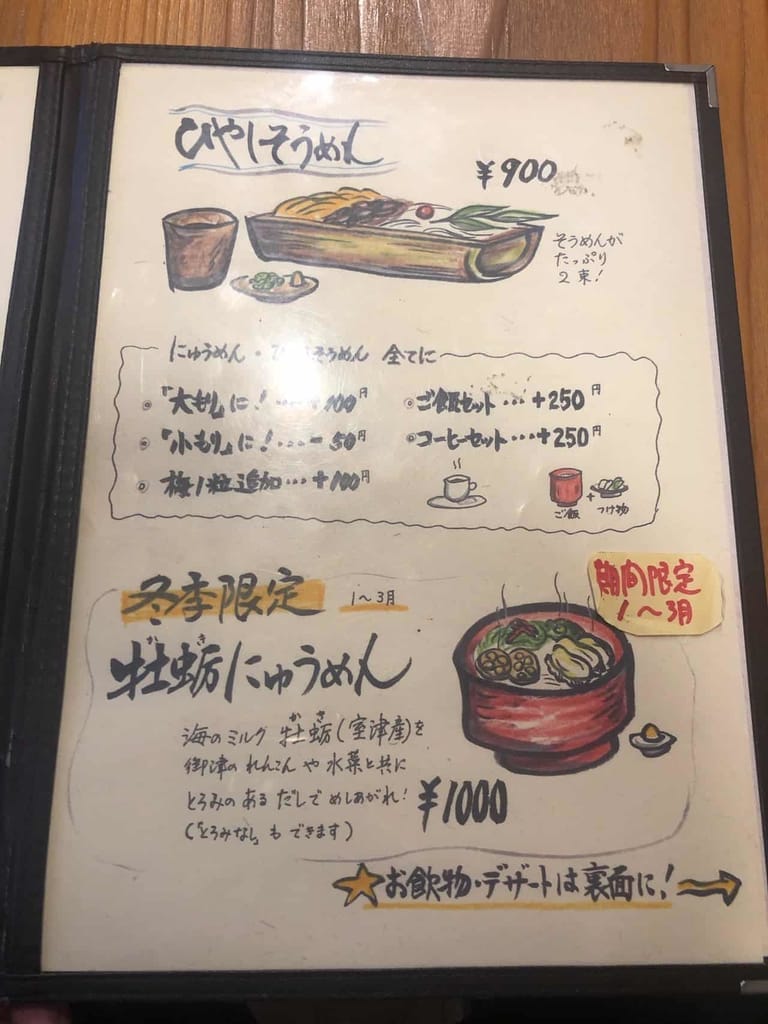 ひやしそうめん
¥900
そうめんが
たっぷり
2束!
にゅうめん・ひやしそうめん 全てに
◎「大もり」に!…+100円
◎「小もり」に!…-50円
◎梅1粒追加…+100円
◎ご飯セット…+250円
◎コーヒーセット…+250円
ご飯
+
つけ物
冬季限定 1~3月
期間限定
1~3月
牡蛎にゅうめん
かき
海のミルク 牡蛎(室津産)を
かき
御津のれんこんや水菜と共に
とろみのあるだしでめしあがれ!
(「とろみなし」もできます)
¥1000
★お飲物・デザートは裏面に!→